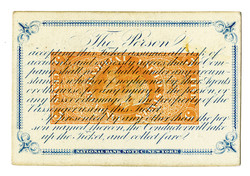 The Person
accepting this Ticket assumes all risk of
accidents, and expressly agrees that the Com
pany shall not be liable under any circum
stances, whether of negligence by their Agents
or otherwise, for any injury to the person, or
any loss or injury to the property of the
Passenger using this
If presented by any other than the per
son named thereon, the Conductor will take
up the Ticket, and collect fare.
NATIONAL BANK NOTE CO. NEW YORK